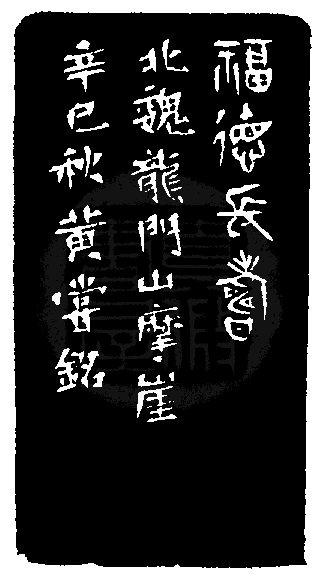 福德長壽
北魏龍門山摩崖
辛巳秋黃嘗銘